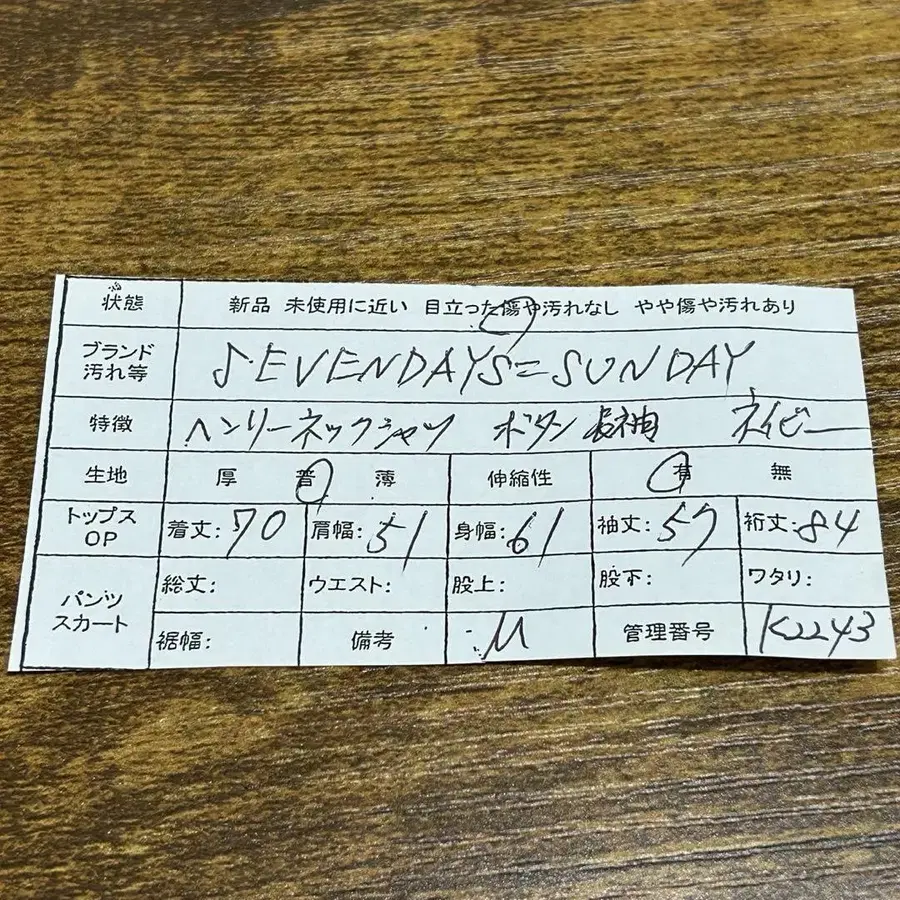 状態 新品 未使用に近い 目立った傷や汚れなし やや傷や汚れあり
ブランド 汚れ等 SEVENDAYS=SUNDAY
特徴 ヘンリーネックシャツ ボタン 長袖 ネイビー
生地 厚 普 薄 伸縮性 有 無
トップス OP 着丈:70 肩幅:51 身幅:61 袖丈:57 裄丈:84
パンツ スカート 総丈: ウエスト: 股上: 股下: ワタリ:
裾幅: 備考 M 管理番号 K2243